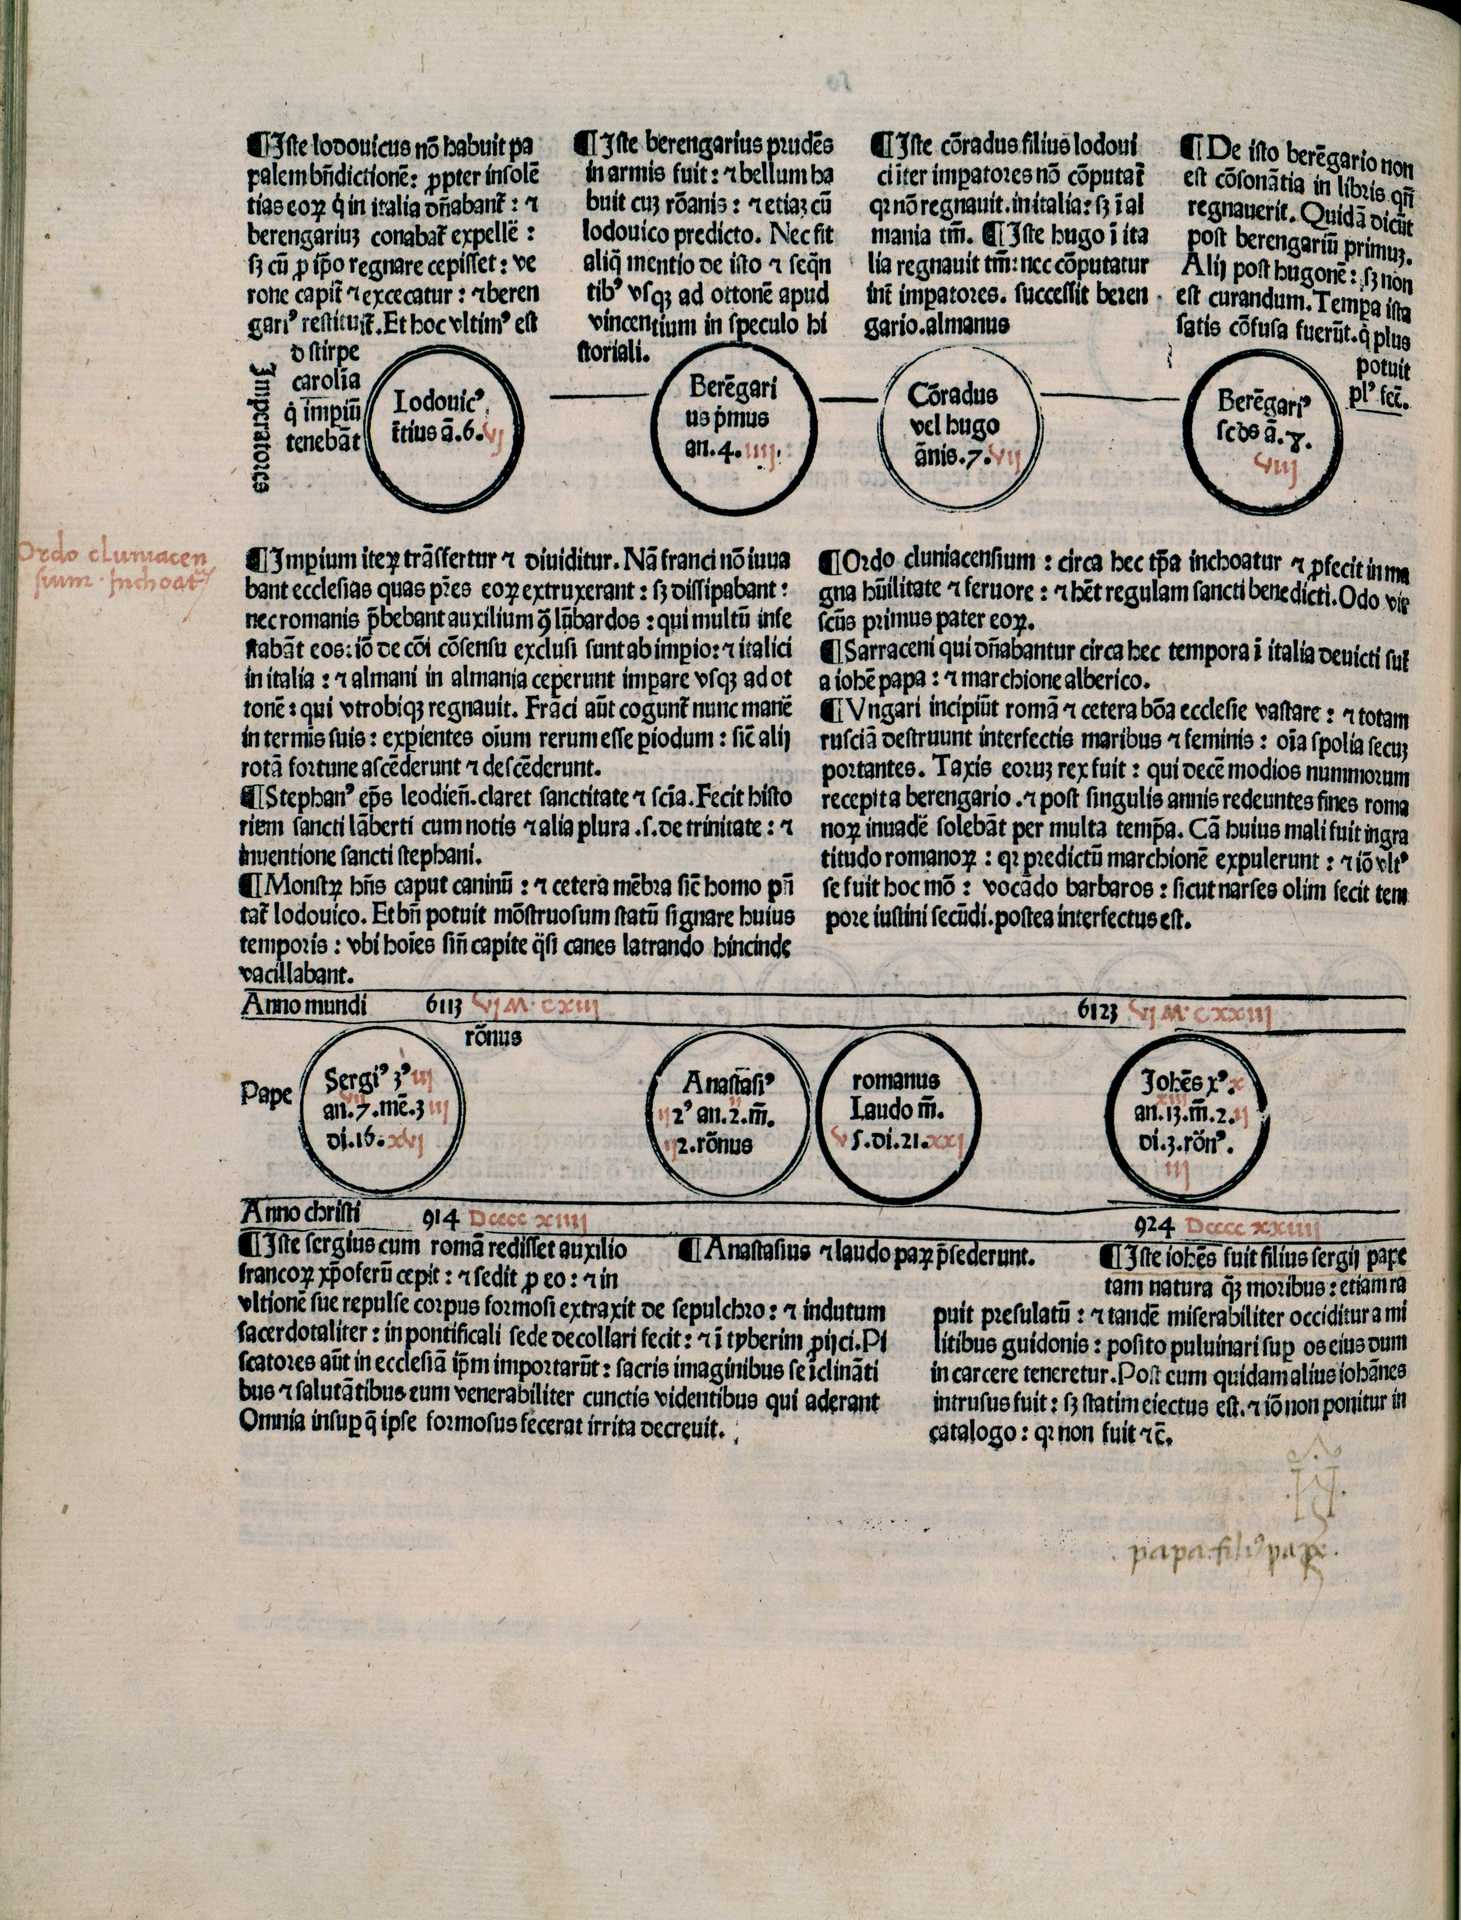 ¶Iste lodouicus nō habuit pa
palem bn̄dictionē: ꝓpter insolē
tias eoꝝ q̇ in italia dn̄abant᷑: ⁊
berengariuȝ conabat᷑ expellē:
sȝ cū ꝓ ip̄o regnare cepisset: ve
rone capit᷑ ⁊ excecatur: ⁊ beren
gariꝰ restituit᷑. Et hoc vltimꝰ est
d stirpe
carolīa
q̇ impiū
tenebāt
¶Iste berengarius prudēs
in armis fuit: ⁊ bellum ha
buit cuȝ rōanis: ⁊ etiaȝ cū
lodouico predicto. Nec fit
aliq̄ mentio de isto ⁊ seq̄n
tibꝰ vsqȝ ad ottonē apud
vincentium in speculo hi
storiali.
¶Iste cōradus filius lodoui
ci iter imꝑatores nō cōputat᷑
qꝛ nō regnauit. in italia: sȝ ī al
mania tm̄. ¶Iste hugo ī ita
lia regnauit tm̄: nec cōputatur
int᷑ imꝑatores. successit beren
gario. almanus
¶De isto berēgario non
est cōsonātia in libris qn̄
regnauerit. Quidā dicūt
post berengariū primuȝ.
Alij post hugonē: sȝ non
est curandum. Temꝑa ista
satis cōfusa fuerūt. q̇ plus
potuit
plꝰ fec̄.
Imperatores
Lodouicꝰ
t᷑tius ā. 6. vj
Berēgari
us pṁus
an. 4. iiij
Cōradus
vel hugo
ānis. 7. vij
Berēgariꝰ
scd̄s ā. 8.
viij
Ordo cluniacen
sium Inchoat᷑
¶Imꝑium iteꝝ trāsfertur ⁊ diuiditur. Nā franci nō iuua
bant ecclesias quas pr̄es eoꝝ extruxerant: sȝ dissipabant:
nec romanis p̄bebant auxilium ꝯ lūbardos: qui multū infe
stabāt eos: iō de cōi cōsensu exclusi sunt ab imꝑio: ⁊ italici
in italia: ⁊ almani in almania ceperunt imꝑare vsqȝ ad ot
tonē: qui vtrobiqȝ regnauit. Frāci aūt cogunt᷑ nunc manē
in termīs suis: exꝑientes oīum rerum esse ꝑiodum: sic̄ alij
rotā fortune ascēderunt ⁊ descēderunt.
¶Stephanꝰ ep̄s leodien̄. claret sanctitate ⁊ scīa. Fecit histo
riam sancti lāberti cum notis ⁊ alia plura .s. de trinitate: ⁊
inuentione sancti stephani.
¶Monstꝝ hn̄s caput caninū: ⁊ cetera mēbra sic̄ homo pn̄
tat᷑ lodouico. Et bn̄ potuit mōstruosum statū signare huius
temporis: vbi hoīes sin̄ capite q̈si canes latrando hincinde
vacillabant.
¶Ordo cluniacensium: circa hec tp̄a inchoatur ⁊ ꝓfecit in ma
gna hūilitate ⁊ feruore: ⁊ hēt regulam sancti benedicti. Odo vir
scūs primus pater eoꝝ.
¶Sarraceni qui dn̄abantur circa hec tempora ī italia deuicti sūt
a iohē papa: ⁊ marchione alberico.
¶Vngari incipiūt romā ⁊ cetera bōa ecclesie vastare: ⁊ totam
rusciā destruunt interfectis maribus ⁊ feminis: oīa spolia secuȝ
portantes. Taxis eoruȝ rex fuit: qui decē modios nummorum
recepit a berengario. ⁊ post singulis annis redeuntes fines roma
noꝝ inuadē solebāt per multa temp̄a. Cā huius mali fuit ingra
titudo romanoꝝ: qꝛ predictū marchionē expulerunt: ⁊ iō vltꝰ
se fuit hoc mō: vocādo barbaros: sicut narses olim fecit tem
pore iustini secūdi. postea interfectus est.
Anno mundi 6113 vj M. CXIII 6123 vj M. CXXIII
rōnus
Pape
Sergiꝰ 3ꝰ iij
an. 7. mē. 3 iij
di. 16. xvj
Anastasiꝰ
ij 2ꝰ an. 2. m̄.
ij 2. rōnus
romanus
Laudo m̄.
v 5. di. 21. xxj
Johēs xꝰ. x
xiij
an. 13. m̄. 2. ij
di. 3. rōnꝰ.
iij
Anno christi 914 Dcccc xiiij 924 Dcccc xxiiij
¶Iste sergius cum romā redisset auxilio
francoꝝ xp̄oferū cepit: ⁊ sedit ꝓ eo: ⁊ in
vltionē sue repulse corpus formosi extraxit de sepulchro: ⁊ indutum
sacerdotaliter: in pontificali sede decollari fecit: ⁊ ī tyberim ꝓijci. Pi
scatores aūt in ecclesiā ip̄m importarūt: sacris imaginibus se īclināti
bus ⁊ salutātibus eum venerabiliter cunctis videntibus qui aderant
Omnia insuꝑ q̄ ipse formosus fecerat irrita decreuit.
¶Anastasius ⁊ laudo paꝝ p̄sederunt.
¶Iste iohēs fuit filius sergij pape
tam natura q̄ȝ moribus: etiam ra
puit presulatū: ⁊ tandē miserabiliter occiditur a mi
litibus guidonis: posito puluinari suꝑ os eius dum
in carcere teneretur. Post eum quidam alius iohānes
intrusus fuit: sȝ statim eiectus est. ⁊ iō non ponitur in
catalogo: qꝛ non fuit ⁊c̄.
papa filiꝰ pape.